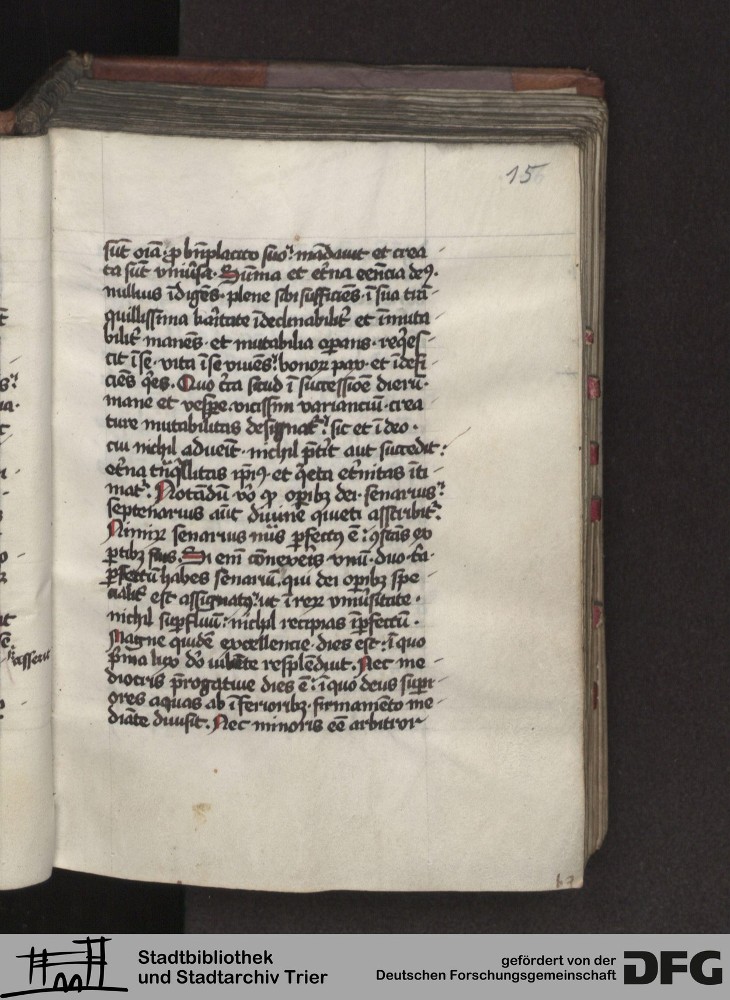 15
sūt oīa · ꝓ bn̄placito suo: mādauit et crea
ta sūt vniūsa · Sūma et et̄na eēncia deꝰ ·
nullius īdigēs · plene sibi sufficiēs · ī sua trā
quillissima
bilit̄ manēs · et mutabilia oꝑans · reqͥes
cit ī se · vita ī se viuēs: bonoꝝ pax · et īdefi
ciēs qͥes · Quo cͥca sicud ī successiōe dierū ·
mane et vesꝑe vicissim variancū · crea
ture mutabilitas designat᷑: sic et ī deo ·
cui nichil adueīt · nichil p̄tīt aut succedit:
et̄na tͣnqͥllitas ip̄iꝰ · et qͥeta et̄nitas īti
mat᷑ · Notādū vͦo ꝙ oꝑibꝫ dei · senarius:
septenarius aūt diuine quieti asscribit᷑ ·
Nimiꝝ senarius nūs ꝑfectꝰ ē: ꝯstās ex
ꝑtibꝫ suis · Si eni vnū · duo · tͥa ·
ꝑfectū habes senariū · qui dei oꝑibꝫ spe
cialit̄ est assignatꝰ: ut ī reꝝ vniūsitate ·
nichil suꝑfluū: nichil recipias īꝑfectū ·
Magne quidē excellencie · dies est: ī quo
pͥma lux dͦo iubēte resplēduit · Nec me
diocris p̄rogatiue dies ē: ī quo deus suꝑi
ores aquas ab īferioribꝫ · firmamēto me
diāte diuisit · Nec minoris eē arbitror
67
Stadtbibliothek
und Stadtarchiv Trier
gefördert von der
Deutschen Forschungsgemeinschaft
DFG